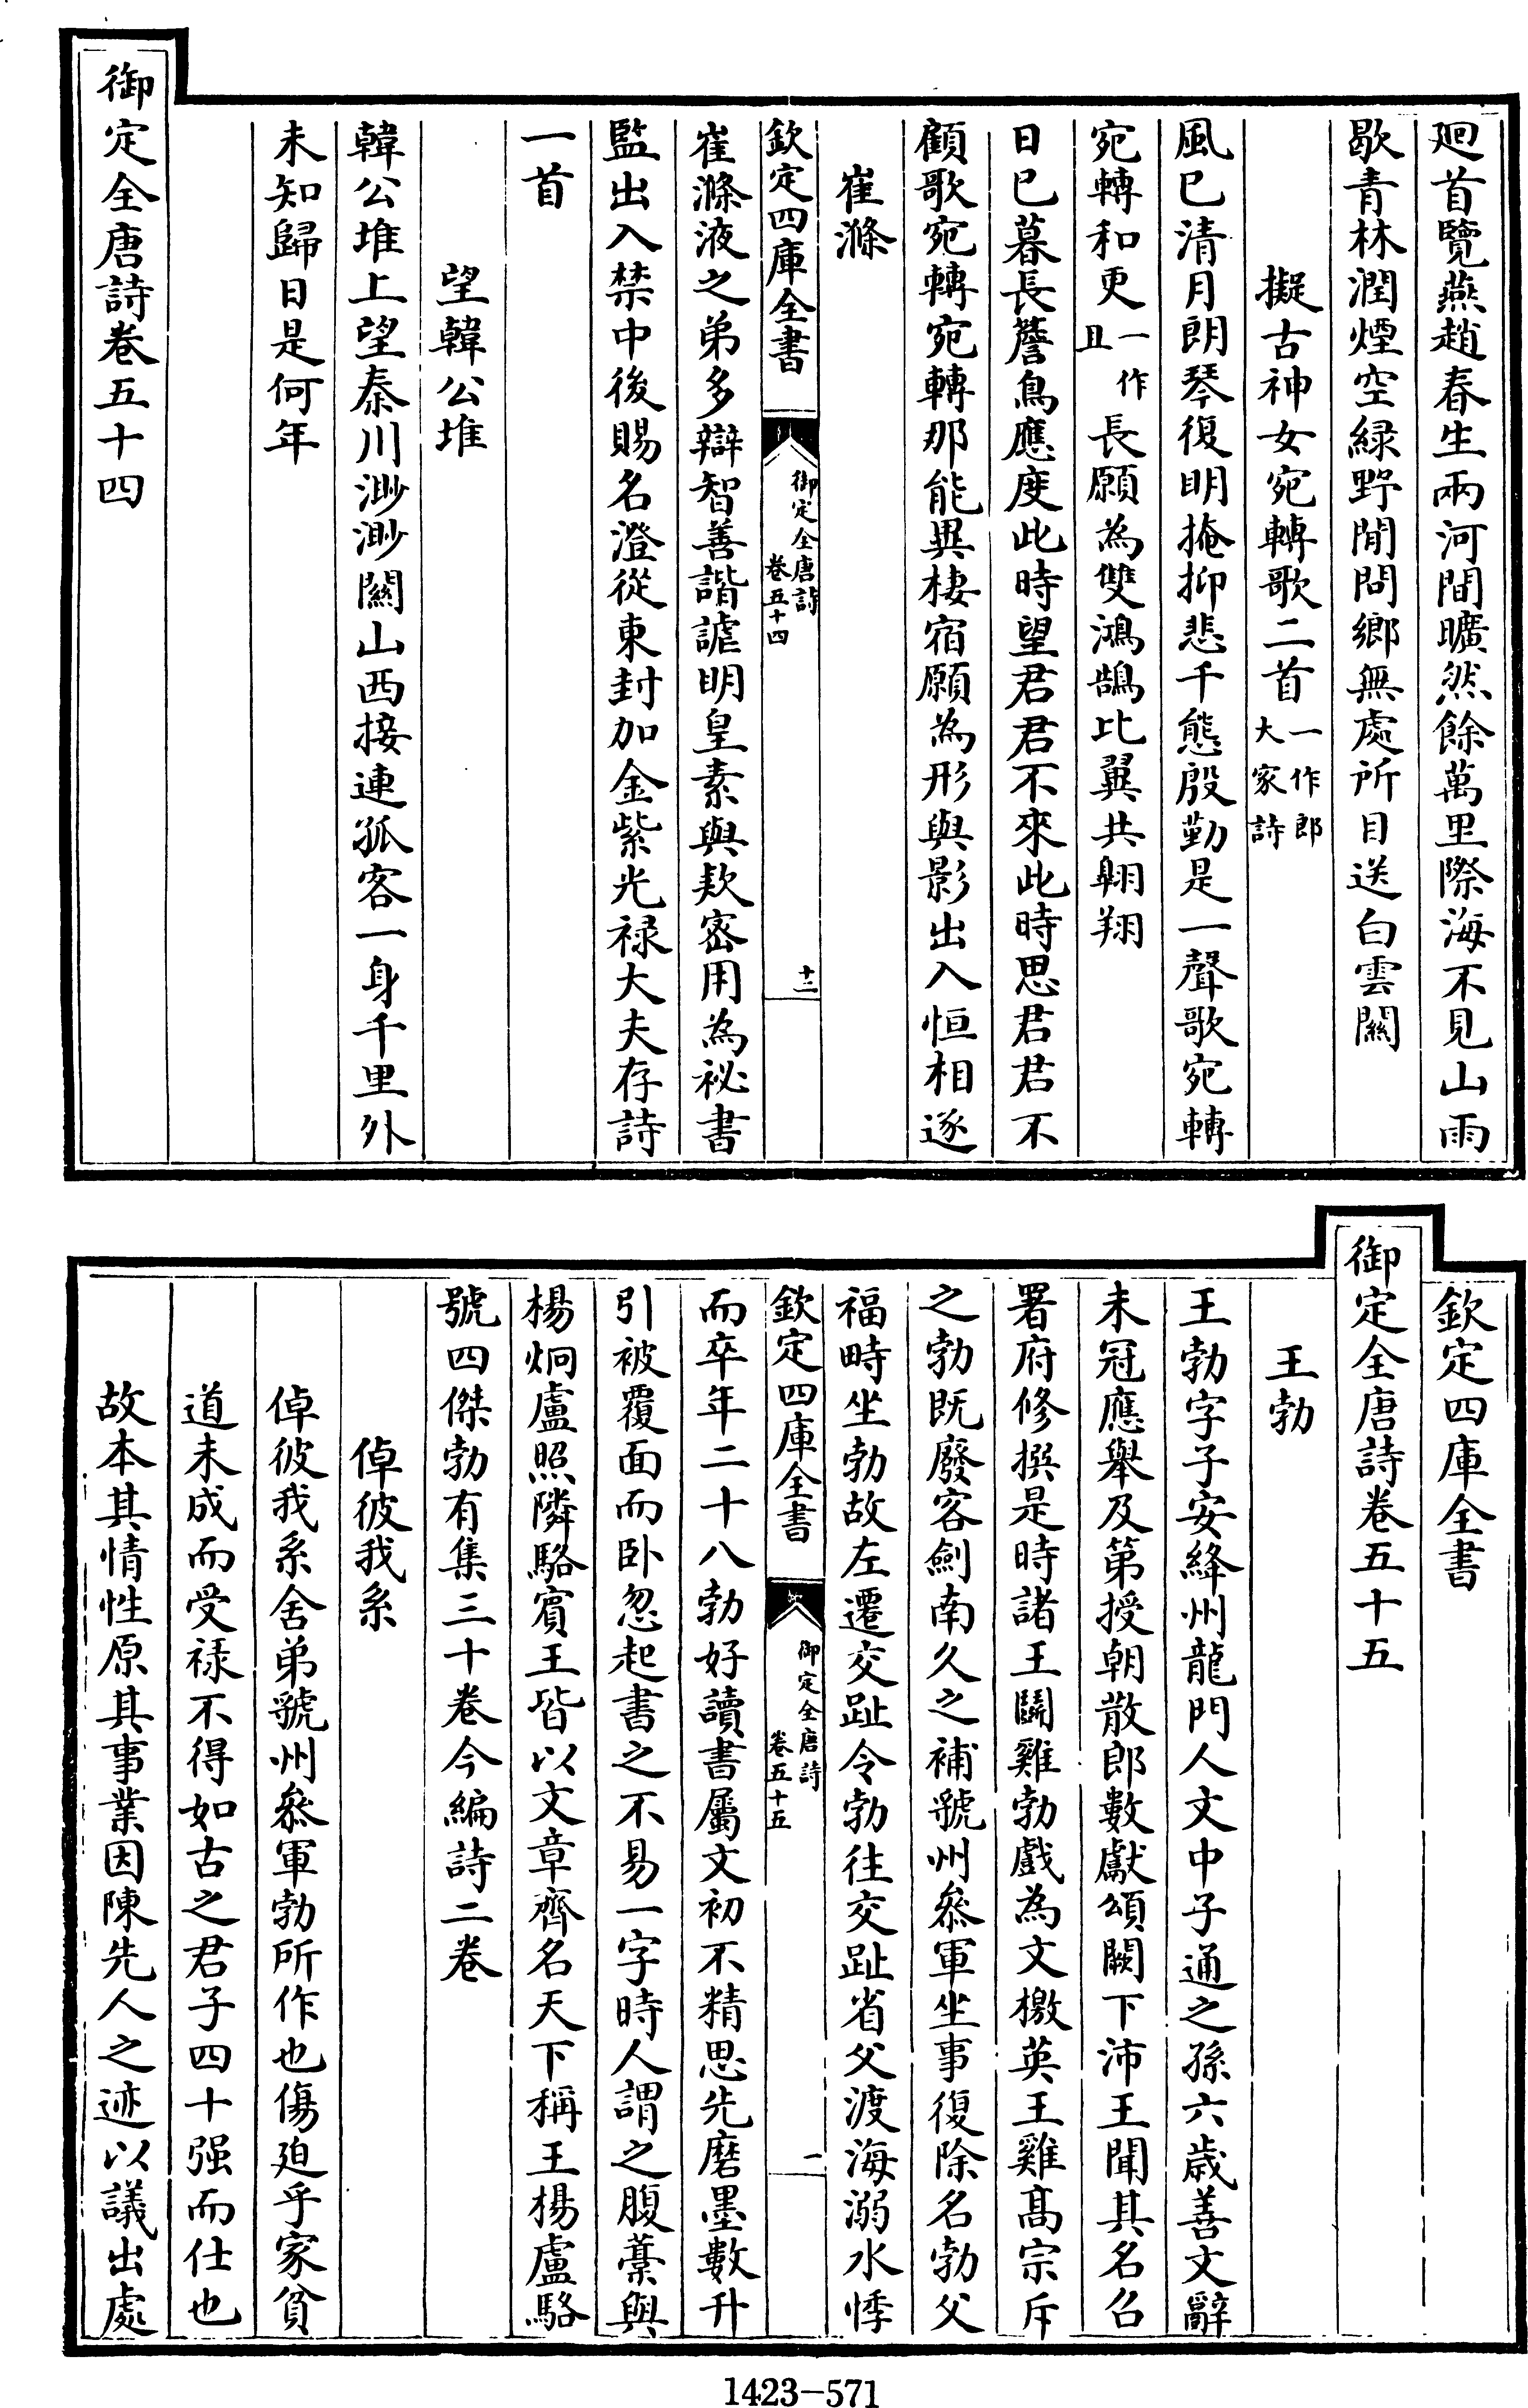 廻首覽燕趙春生兩河間曠然餘萬里際海不見山雨
歇青林潤煙空緑野閒問鄉無處所目送白雲關
擬古神女宛轉歌二首一作郎大家詩
風已清月朗琴復明掩抑悲千態殷勤是一聲歌宛轉
宛轉和更一作且長願為雙鴻鵠比翼共翺翔
日已暮長簷鳥應度此時望君君不來此時思君君不
顧歌宛轉宛轉那能異棲宿願為形與影出入恒相逐
崔滌
欽定四庫全書
御定全唐詩
卷五十四
十二
崔滌液之弟多辯智善諧謔明皇素與欵宻用為祕書
監出入禁中後賜名澄從東封加金紫光禄大夫存詩
一首
望韓公堆
韓公堆上望秦川渺渺關山西接連孤客一身千里外
未知歸日是何年
御定全唐詩卷五十四
欽定四庫全書
御定全唐詩卷五十五
王勃
王勃字子安絳州龍門人文中子通之孫六歲善文辭
未冠應舉及第授朝散郎數獻頌闕下沛王聞其名召
署府修撰是時諸王鬬雞勃戲為文檄英王雞髙宗斥
之勃既廢客劍南久之補虢州叅軍坐事復除名勃父
福畤坐勃故左遷交趾令勃往交趾省父渡海溺水悸
欽定四庫全書
御定全唐詩
卷五十五
一
而卒年二十八勃好讀書屬文初不精思先磨墨數升
引被覆面而卧忽起書之不易一字時人謂之腹藁與
楊炯盧照隣駱賓王皆以文章齊名天下稱王楊盧駱
號四傑勃有集三十卷今編詩二卷
倬彼我系
倬彼我系舍弟虢州叅軍勃所作也傷迫乎家貧
道未成而受禄不得如古之君子四十强而仕也
故本其情性原其事業因陳先人之迹以議出處
1423-571